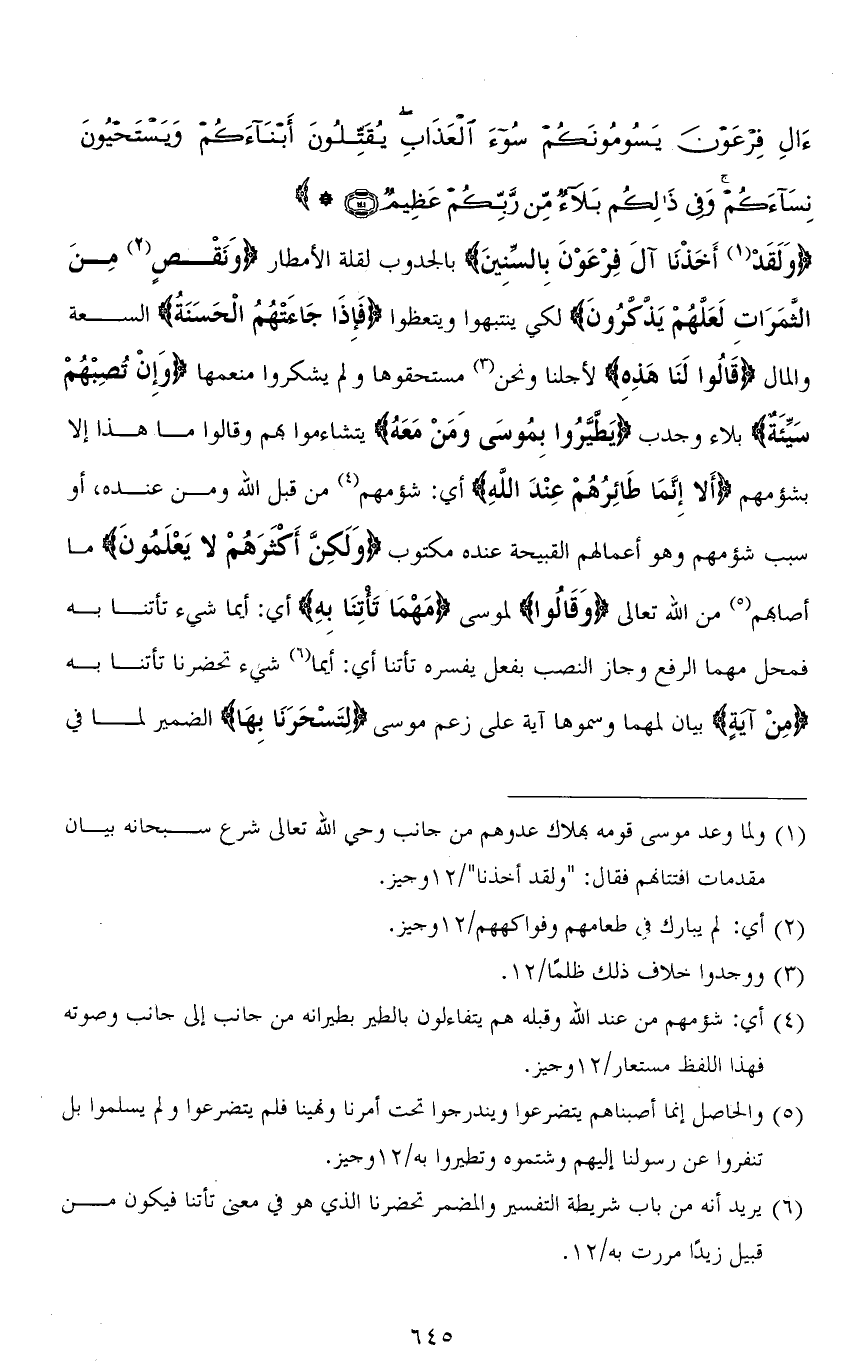 ءَالِ فِرْعَوْنَ يَسُومُونَكُمْ سُوٓءَ ٱلْعَذَابِ ۖ يُقَتِّلُونَ أَبْنَآءَكُمْ وَيَسْتَحْيُونَ
نِسَآءَكُمْ ۚ وَفِى ذَٰلِكُم بَلَآءٌ مِّن رَّبِّكُمْ عَظِيمٌ (١٤١) * ﴾
﴿وَلَقَدْ(١) أَخَذْنَا آلَ فِرْعَوْنَ بِالسِّنِينَ﴾ بالجدوب لقلة الأمطار ﴿وَنَقْصٍ(٢) مِنَ
الثَّمَرَاتِ لَعَلَّهُمْ يَذَّكَّرُونَ﴾ لكي ينتبهوا ويتعظوا ﴿فَإِذَا جَاءَتْهُمُ الْحَسَنَةُ﴾ السعة
والمال ﴿قَالُوا لَنَا هَذِهِ﴾ لأجلنا ونحن(٣) مستحقوها ولم يشكروا منعمها ﴿وَإِنْ تُصِبْهُمْ
سَيِّئَةٌ﴾ بلاء وجدب ﴿يَطَّيَّرُوا بِمُوسَى وَمَنْ مَعَهُ﴾ يتشاءموا بهم وقالوا ما هذا إلا
بشؤمهم ﴿أَلا إِنَّمَا طَائِرُهُمْ عِنْدَ اللَّهِ﴾ أي: شؤمهم(٤) من قبل الله ومن عنده، أو
سبب شؤمهم وهو أعمالهم القبيحة عنده مكتوب ﴿وَلَكِنَّ أَكْثَرَهُمْ لا يَعْلَمُونَ﴾ ما
أصابهم(٥) من الله تعالى ﴿وَقَالُوا﴾ لموسى ﴿مَهْمَا تَأْتِنَا بِهِ﴾ أي: أيما شيء تأتنا به
فمحل مهما الرفع وجاز النصب بفعل يفسره تأتنا أي: أيما(٦) شيء تحضرنا تأتنا به
﴿مِنْ آيَةٍ﴾ بيان لمهما وسموها آية على زعم موسى ﴿لِتَسْحَرَنَا بِهَا﴾ الضمير لما في
(١) ولما وعد موسى قومه بهلاك عدوهم من جانب وحي الله تعالى شرع سبحانه بيان
مقدمات افتتانهم فقال: "ولقد أخذنا"/١٢وجيز.
(٢) أي: لم يبارك في طعامهم وفواكههم/١٢وجيز.
(٣) ووجدوا خلاف ذلك ظلمًا/١٢.
(٤) أي: شؤمهم من عند الله وقبله هم يتفاءلون بالطير بطيرانه من جانب إلى جانب وصوته
فهذا اللفظ مستعار/١٢وجيز.
(٥) والحاصل إنما أصبناهم يتضرعوا ويندرجوا تحت أمرنا ونهينا فلم يتضرعوا ولم يسلموا بل
تنفروا عن رسولنا إليهم وشتموه وتطيروا به/١٢وجيز.
(٦) يريد أنه من باب شريطة التفسير والمضمر تحضرنا الذي هو في معنى تأتنا فيكون من
قبيل زيدًا مررت به/١٢.
٦٤٥